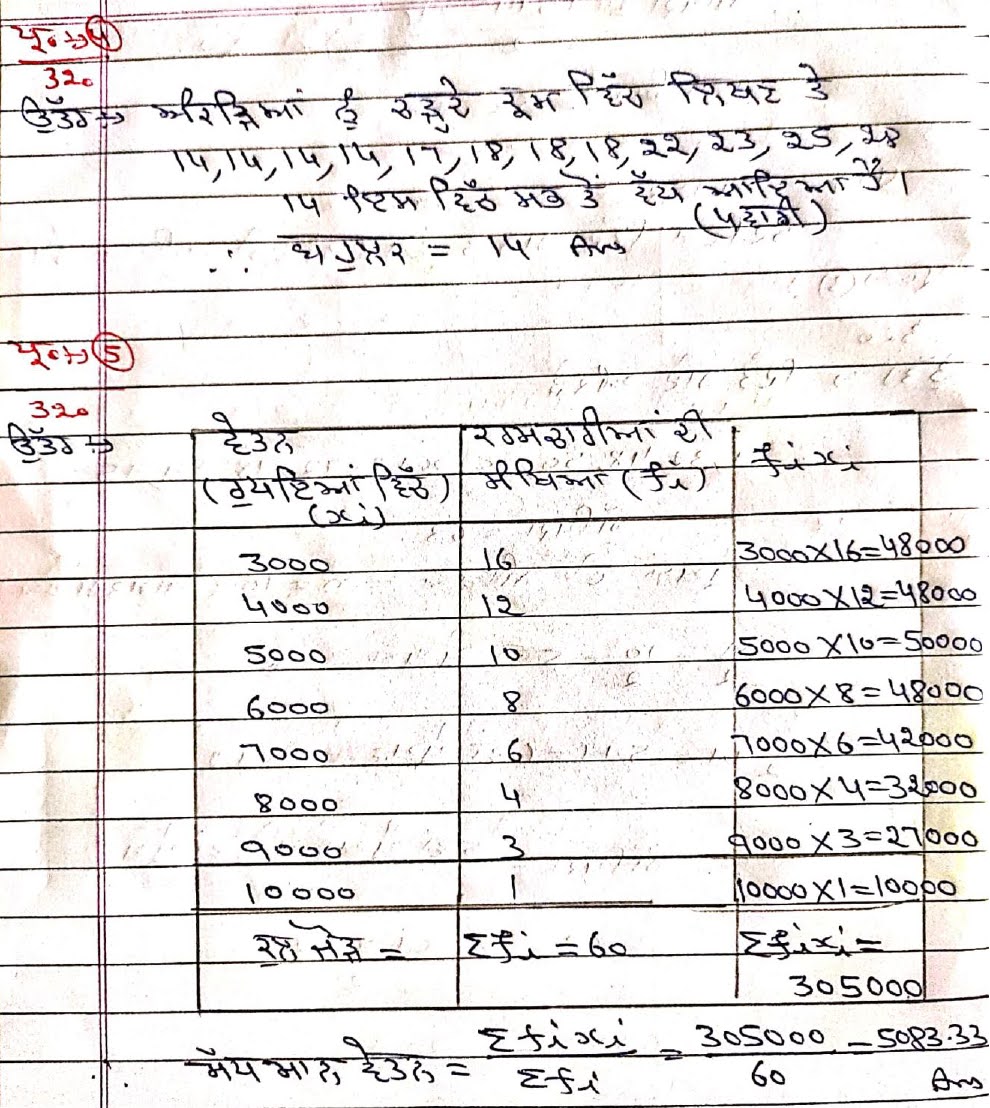 ਪ੍ਰ੦→ 4
320
ਉੱਤਰ→ ਅੰਕੜਿਆਂ ਨੂੰ ਵਧਦੇ ਕ੍ਰਮ ਵਿੱਚ ਲਿਖਣ ਤੇ
14, 14, 14, 14, 17, 18, 18, 18, 22, 23, 25, 28
14 ਇਸ ਵਿੱਚ ਸਭ ਤੋਂ ਵੱਧ ਆਇਆ ਹੈ।
(ਵਾਰੀ)
∴ ਬਹੁਲਕ = 14 Ans
ਪ੍ਰ੦→ 5
320
ਉੱਤਰ→ ਵੇਤਨ ਕਰਮਚਾਰੀਆਂ ਦੀ fixi
(ਰੁਪਇਆਂ ਵਿੱਚ) ਸੰਖਿਆ (fi)
(xi)
3000 16 3000×16=48000
4000 12 4000×12=48000
5000 10 5000×10=50000
6000 8 6000×8=48000
7000 6 7000×6=42000
8000 4 8000×4=32000
9000 3 9000×3=27000
10000 1 10000×1=10000
ਕੁੱਲ ਜੋੜ = Σfi = 60 Σfixi =
305000
ਮੱਧਮਾਨ ਵੇਤਨ = Σfixi / Σfi = 305000 / 60 = 5083.33
Ans